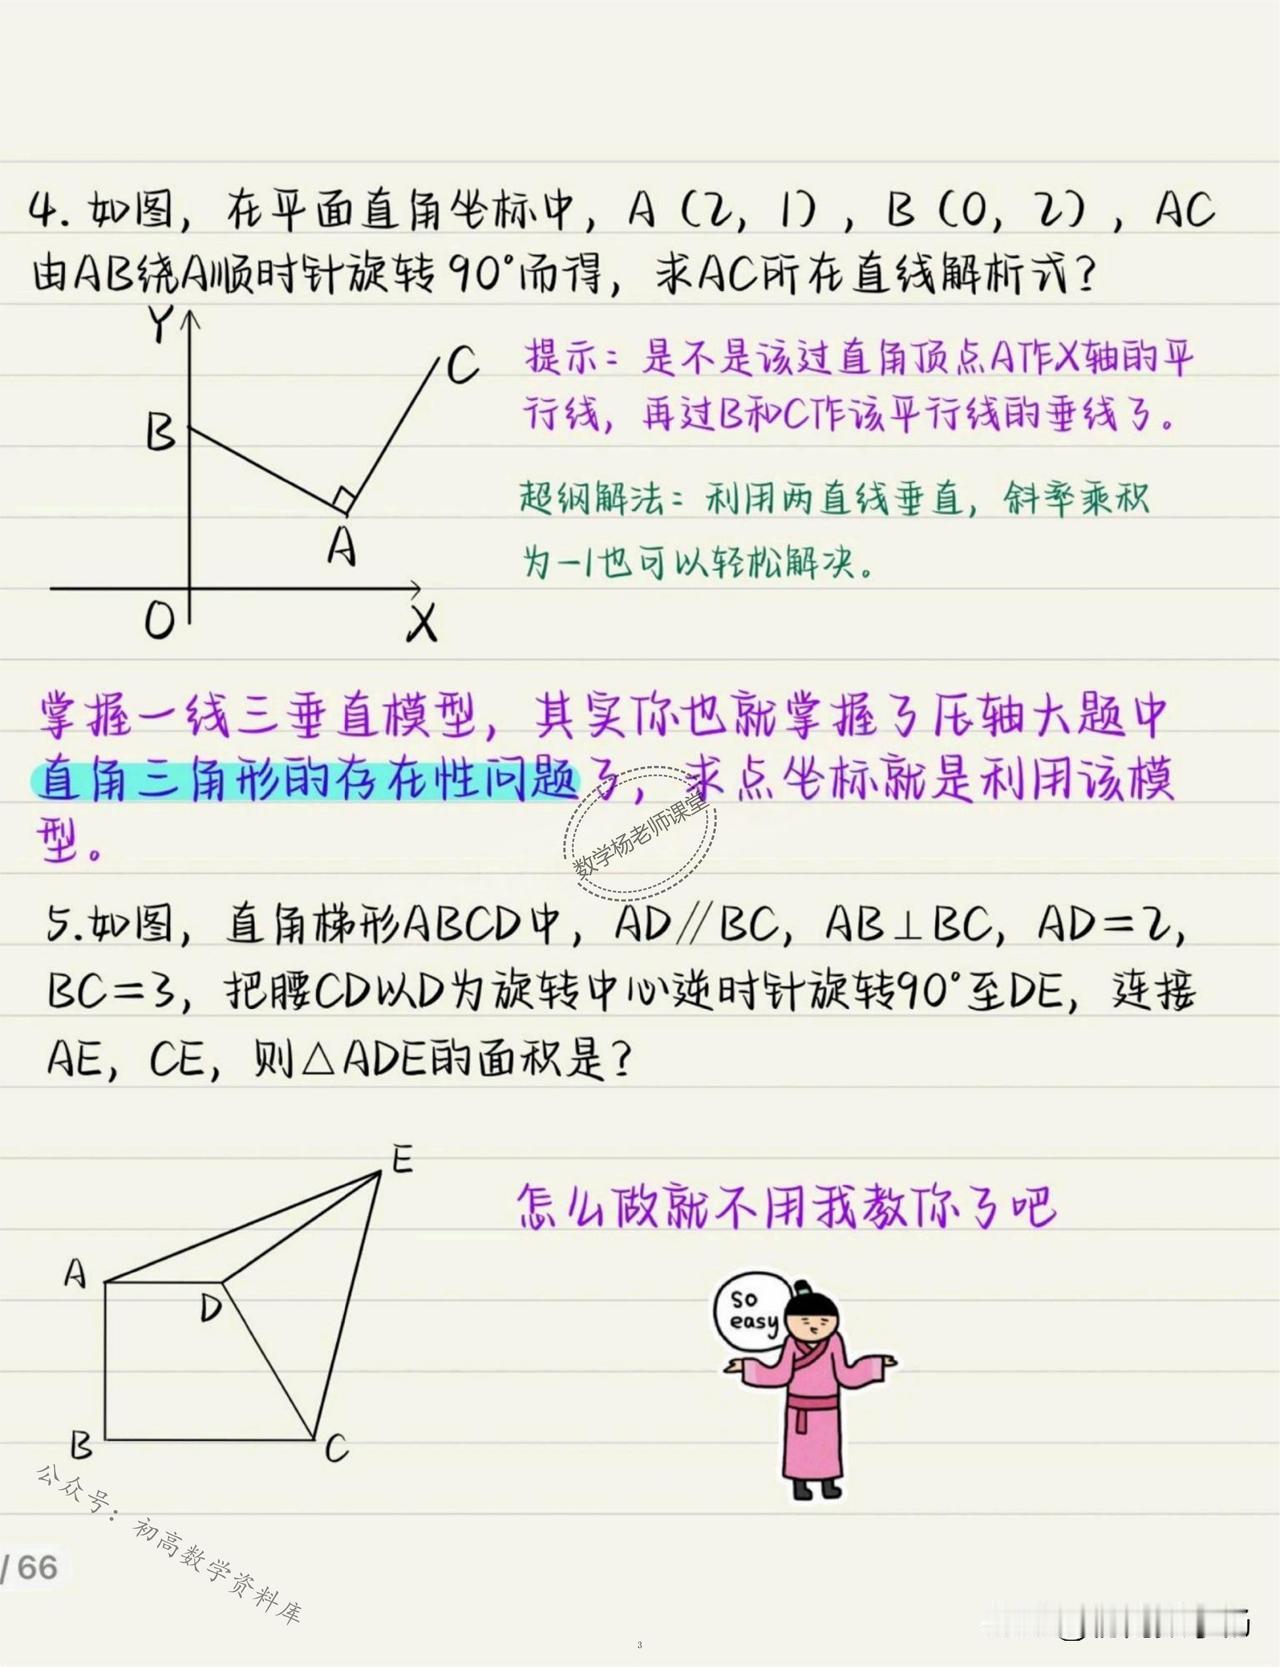 4. 如图，在平面直角坐标中，A（2，1），B（0，2），AC
由AB绕A顺时针旋转90°而得，求AC所在直线解析式？
Y
C
B
A
O
X
提示：是不是该过直角顶点A作X轴的平
行线，再过B和C作该平行线的垂线了。
超纲解法：利用两直线垂直，斜率乘积
为-1也可以轻松解决。
掌握一线三垂直模型，其实你也就掌握了压轴大题中
直角三角形的存在性问题了，求点坐标就是利用该模
型。
数学杨老师课堂
5.如图，直角梯形ABCD中，AD∥BC，AB⊥BC，AD=2，
BC=3，把腰CD以D为旋转中心逆时针旋转90°至DE，连接
AE，CE，则△ADE的面积是？
E
A
D
B
C
怎么做就不用我教你了吧
so
easy
公众号：初高数学资料库
/ 66
3